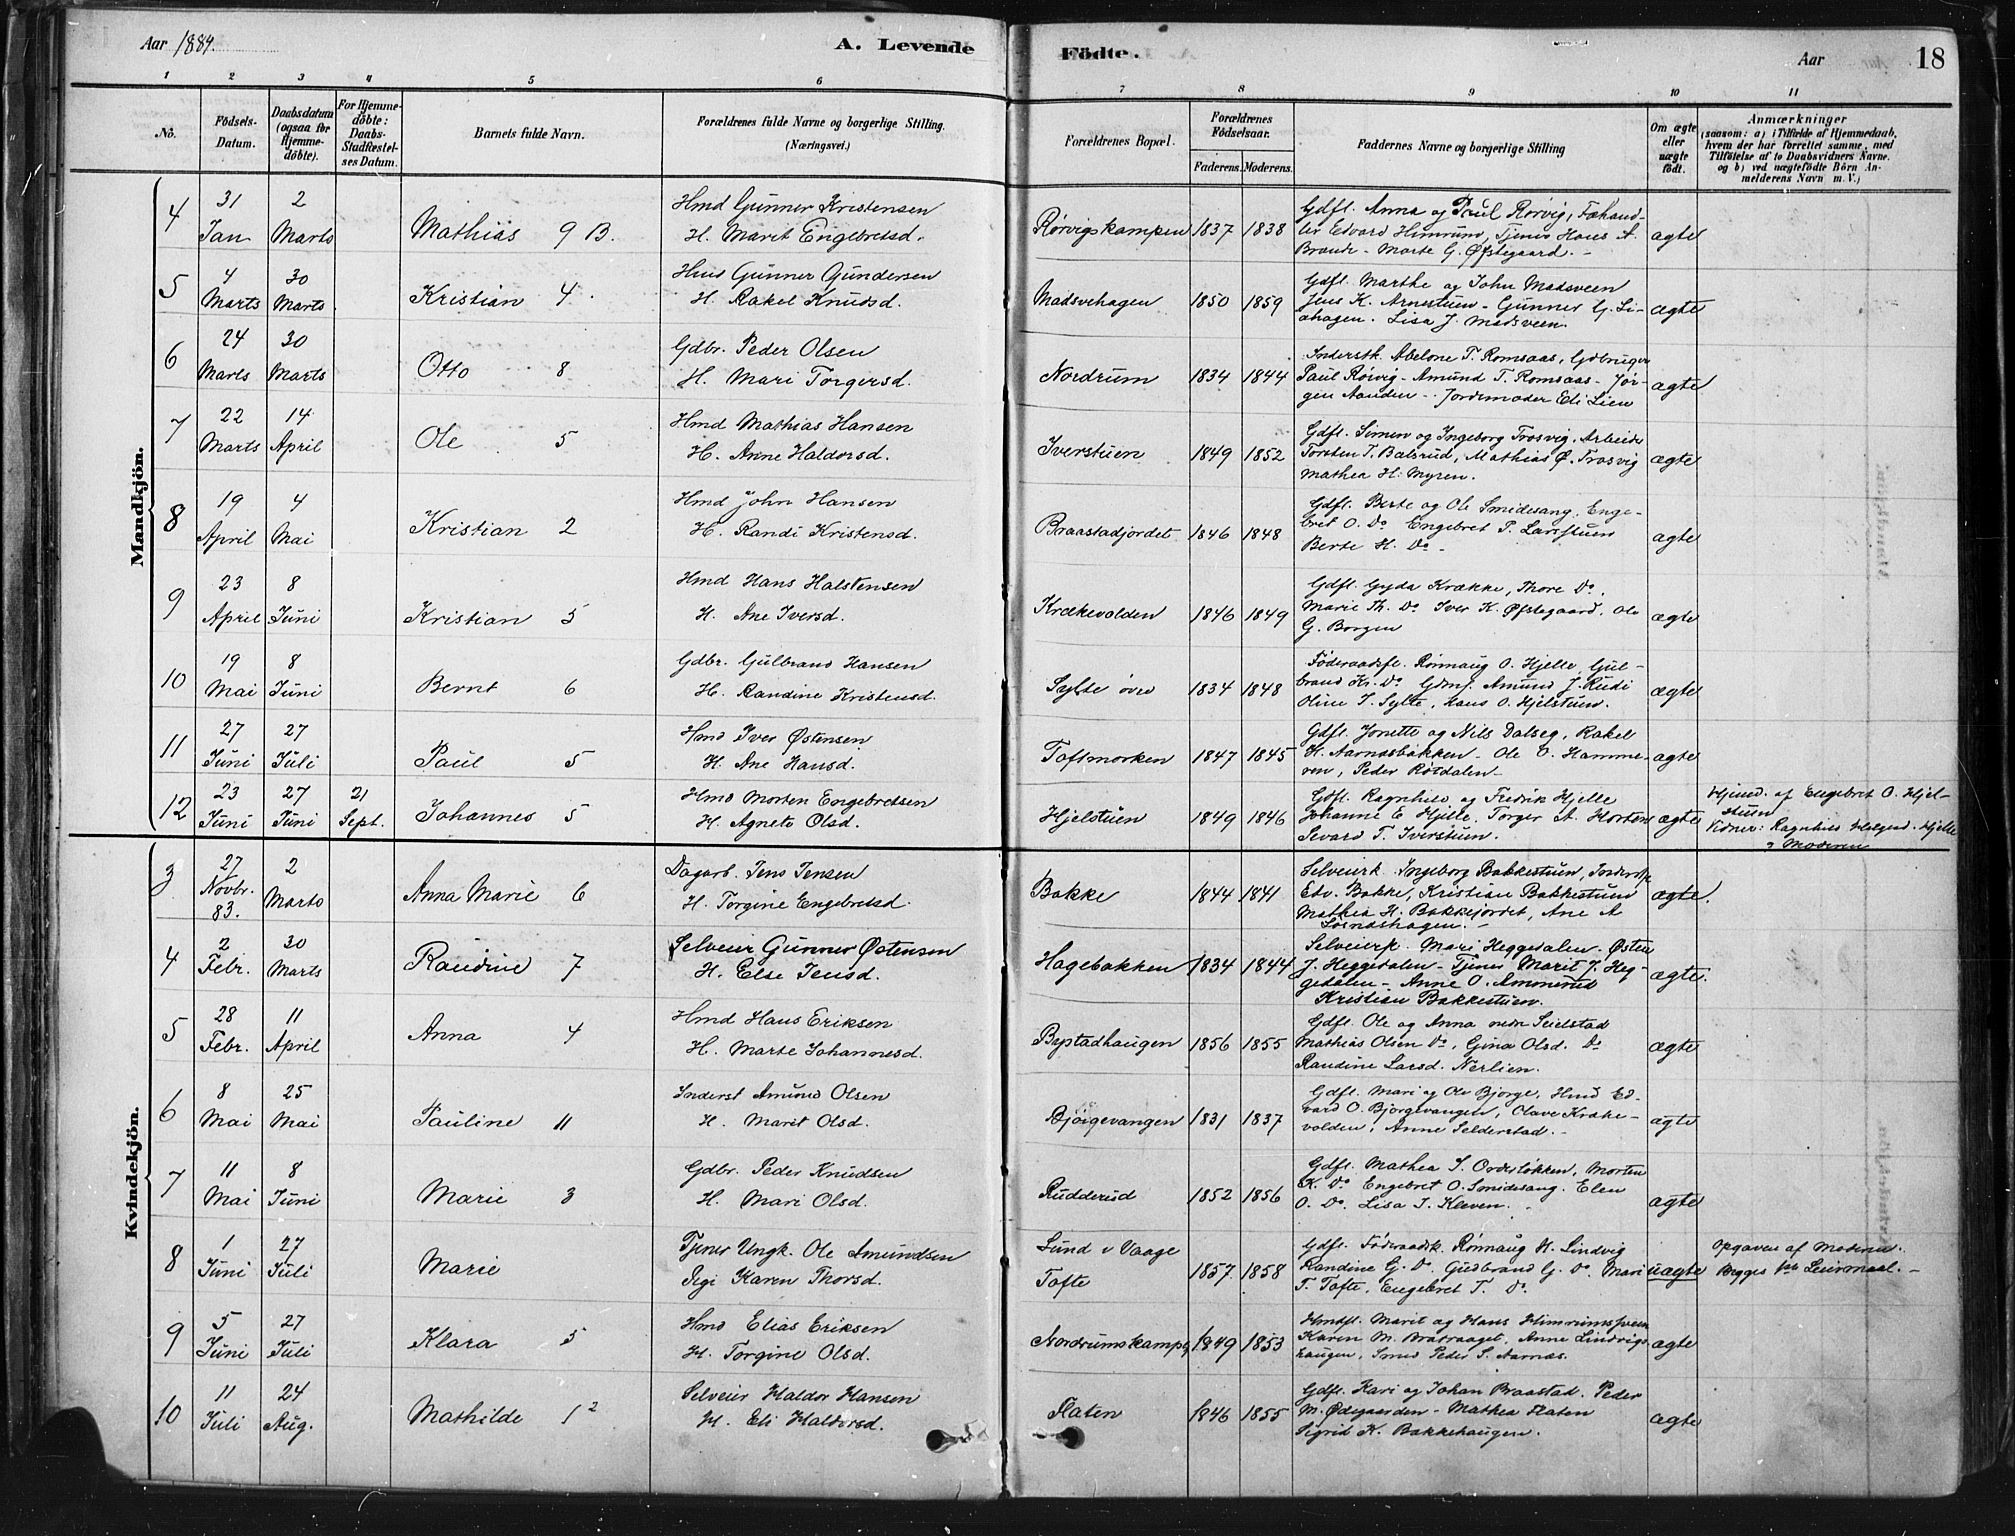 Aar 1884.
A. Levende
Födte.
Aar
18
1 2 3 4 5 6 7 8 9 10 11
No.
Födsels-
Datum.
Daabsdatum
(ogsaa for
Hjemme-
döbte).
For Hjemme-
döbte:
Daabs-
Stadfæstel-
ses Datum.
Barnets fulde Navn.
Forældrenes fulde Navne og borgerlige Stilling.
(Næringsvei.)
Forældrenes Bopæl.
Forældrenes
Födselsaar.
Faderens. Moderens.
Faddernes Navne og borgerlige Stilling
Om ægte
eller
uægte
födt.
Anmærkninger
(saasom: a) i Tilfælde af Hjemmedaab,
hvem der har forrettet samme, med
Tilföielse af to Daabsvidners Navne.
og b) ved uægtefödte Börn An-
melderens Navn m. V.)
Mandkjön.
4
31
Jan
2
Marts
Mathias 9 B.
Hmd Gunner Kristensen
H. Marit Engebretsd.
Rørvigskampen
1837 1838
Gdfl. Anna og Paul Rørvig, Fæhand-
ler Edvard Himrum, Tjener Hans A.
Braade - Marte G. Øfstegaard. -
ægte
5
4
Marts
30
Marts
Kristian 4.
Hmd Gunner Gundersen
H. Rakel Knudsd.
Madsvehagen
1850 1859
Gdfl. Marthe og John Madsveen
Jens K. Arnestuen - Gunner G. Li-
ahagen. Lisa J. Madsveen.
ægte
6
24
Marts
30
Marts
Otto 8
Gdbr. Peder Olsen
H. Mari Torgersd.
Nordrum
1834 1844
Inderstk. Abelone T. Romsaas, Gdbruger
Paul Rørvig - Amund T. Romsaas - Jør-
gen Aanden - Jordemoder Eli Lien
ægte
7
22
Marts
14
April
Ole 5
Hmd Mathias Hansen
H. Anne Haldorsd.
Iverstuen
1849 1852
Gdfl. Simen og Ingeborg Trosvig. Arbeide
Torsten T. Balsrud, Mathias Ø. Trosvig
Mathea H. Myren.
ægte
8
19
April
4
Mai
Kristian 2
Hmd John Hansen
H. Randi Kristensd.
Braastadjordet
1846 1848
Gdfl. Berte og Ole Smidesang. Enge-
bret O. Do Engebret P. Larsstuen
Berte H. Do -
ægte
9
23
April
8
Juni
Kristian 5
Hmd Hans Halstensen
H. Ane Iversd.
Krækevolden
1846 1849
Gdfl. Gyda Krække, Thore Do.
Marie Th. Do Iver K. Øfstegaard, Ole
G. Borgen
ægte
10
19
Mai
8
Juni
Bernt 6
Gdbr. Gulbrand Hansen
H. Randine Kristensd.
Sylte øvre
1834 1848
Føderaadsfl. Rønnaug O. Hjelle, Gul-
brand Kr. Do Gdmf. Amund J. Rudi
Oline T. Sylte, Hans O. Hjelstuen.
ægte
11
27
Juni
27
Juli
Paul 5
Hmd Iver Østensen
H. Ane Hansd.
Toftmorken
1847 1845
Gdfl. Jonette og Nils Dalseg, Rakel
H. Aarnæsbakken - Ole O. Hamme-
ren, Peder Røtdalen -
ægte
12
23
Juni
27
Juni
21
Sept.
Johannes 5
Hmd Morten Engebretsen
H. Agnete Olsd.
Hjelstuen
1849 1846
Gdfl. Ragnhild og Fredrik Hjelle
Johanne E Hjelle. Torger A. Horten
Sevard T. Iverstuen.
ægte
Hjemd. af Engebret O. Hjel-
stuen
Vidner: Ragnhild Helgesd. Hjelle
& Moderen
Kvindekjön.
3
27
Novbr.
83.
2
Marts
Anna Marie 6
Dagarb. Jens Jensen
H. Torgine Engebretsd.
Bakke
1844 1841
Selveierk. Ingeborg Bakkestuen, Inderstk
Edv. Bakke, Kristian Bakkestuen
Mathea H. Bakkejordet, Ane A
ægte.
4
2
Febr.
30
Marts
Randine 7
Selveier Gunner Østensen
H. Else Jensd.
Hagebakken
1834 1844
Selveierfl. Mari Heggedalen. Østen
J. Heggedalen - Tjener Marit J. Heg-
gedalen - Anne O. Ammerud
Kristian Bakkestuen.
ægte.
5
28
Febr.
11
April
Anna 4
Hmd Hans Eriksen
H. Marte Johannesd.
Bystadhaugen
1856 1855
Gdfl. Ole og Anna nedr Seielstad
Mathias Olsen Do, Gina Olsd. Do
Randine Larsd. Nerlien.
ægte
6
8
Mai
25
Mai
Pauline 11
Inderst Amund Olsen
H. Marit Olsd.
Bjørgevangen
1831 1837
Gdfl. Mari og Ole Bjorge, Hmd Ed-
vard O. Bjorgevangen, Olave Kræke-
volden, Anne Selderstad. -
ægte
7
11
Mai
8
Juni
Marie 3
Gdbr. Peder Knudsen
H. Mari Olsd.
Rudderud
1852 1856
Gdfl. Mathea S. Ordesløkken, Morten
K. Do Engebret O. Smidesang. Elen
O. Do. Lisa I. Kleven.
ægte
8
1
Juni
27
Juli
Marie
Tjener Ungk. Ole Amundsen
Pige Karen Thorsd.
Sund i Vaage
Tofte
1857 1858
Gdfl. Føderaadsk. Rønnaug H. Lindvig
Randine G. Do. Gudbrand G. Do. Mari
T. Tofte, Engebret T. Do
uægte
Opgaven af Moderen.
Begges 1ste Leiermaal. -
9
5
Juni
27
Juli
Klara 5
Hmd Elias Eriksen
H. Torgine Olsd.
Nordrumskampen
1849 1853
Hmdfl. Marit og Hans Himrumsveen
Karen M. Bratraaget, Anne Lindvigs-
haugen, Smed Peder S. Aarnæs.
ægte
10
11
Juli
24
Aug.
Mathilde 1 2
Selveier Haldor Hansen
H. Eli Haldorsd.
Flaten
1846 1855
Gdfl. Kari og Johan Braastad. Peder
M. Ødegaarden - Mathea Flaten
Sigrid K. Bakkehaugen.
ægte